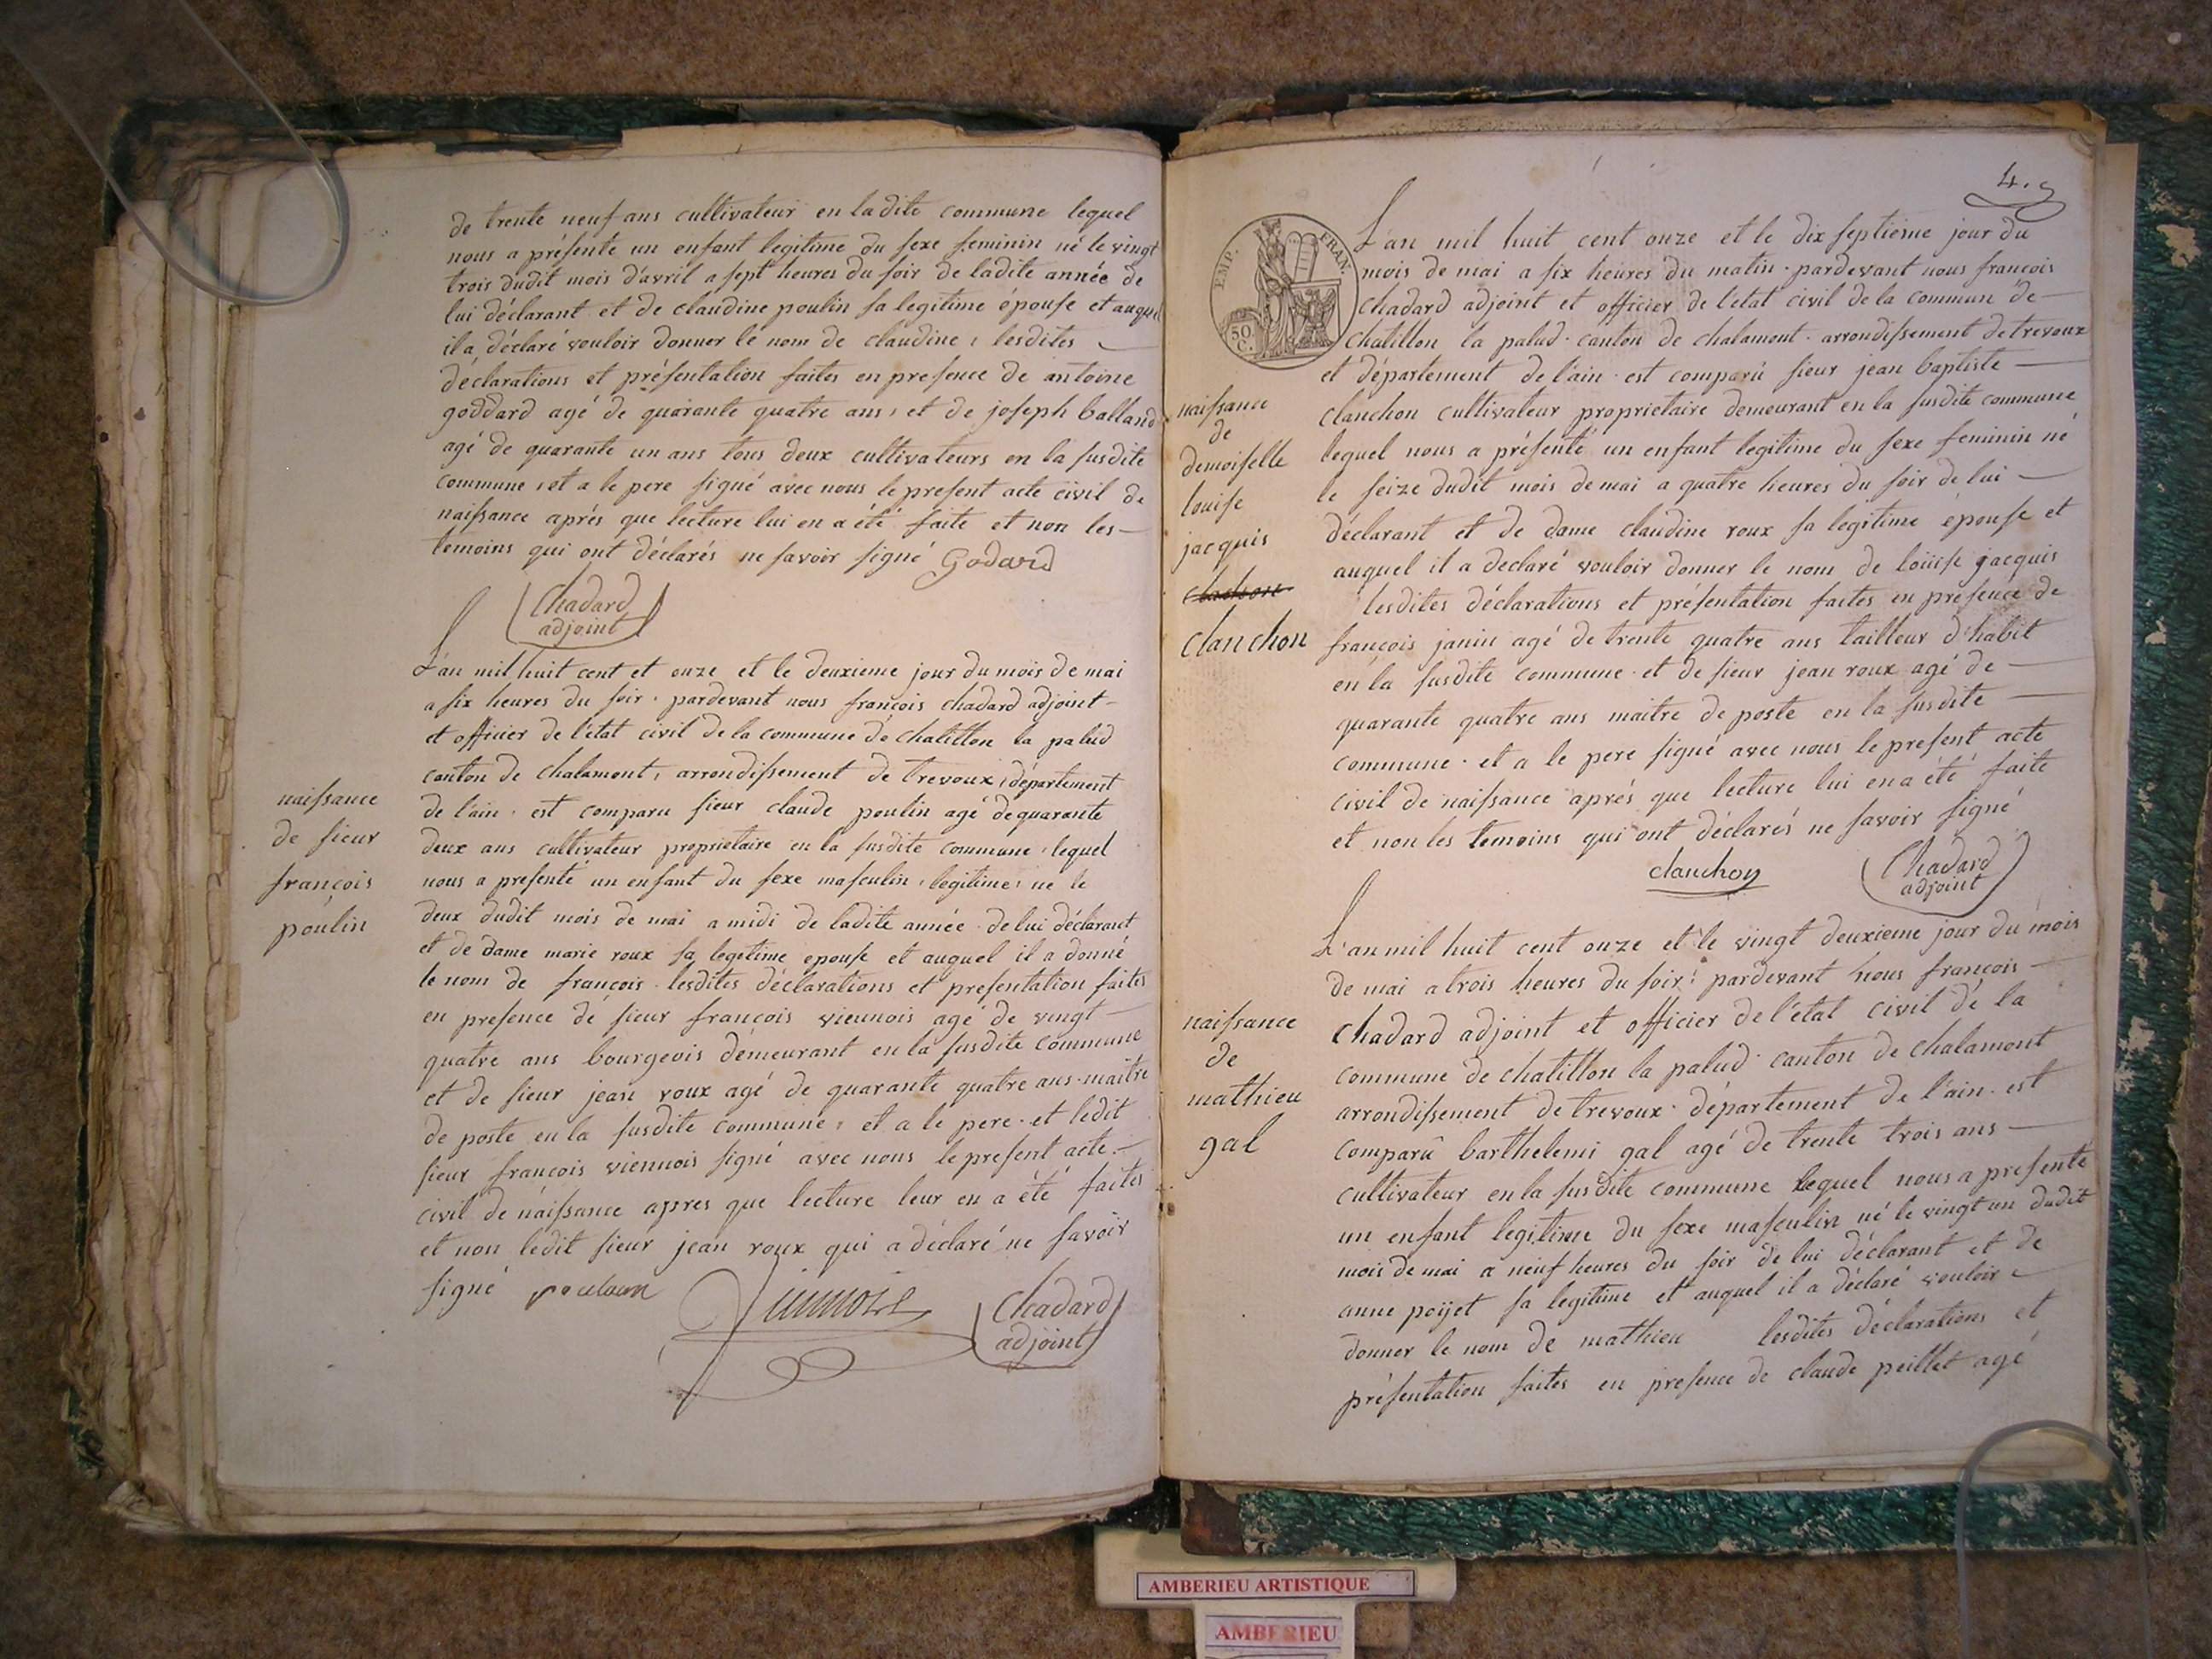 de trente neuf ans cultivateur en la dite commune lequel
nous a présenté un enfant legitime du sexe feminin né le vingt
trois dudit mois d'avril a sept heures du soir de ladite année de
lui déclarant et de claudine poulin sa legitime épouse et auquel
il a déclaré vouloir donner le nom de claudine, lesdites
déclarations et présentation faites en presence de antoine
goddard agé de quarante quatre ans, et de joseph balland
agé de quarante un ans tous deux cultivateurs en la susdite
commune, et a le pere signé avec nous le present acte civil de
naissance aprés que lecture lui en a été faite et non les
temoins qui ont déclarés ne savoir signé Godard
Chadard
adjoint
L'an mil huit cent et onze et le deuxieme jour du mois de mai
a six heures du soir. pardevant nous françois chadard adjoint
et officier de l'état civil de la commune de chatillon la palud
canton de chalamont, arrondissement de trevoux, département
de l'ain. est comparu sieur claude poulin agé de quarante
deux ans cultivateur proprietaire en la susdite commune, lequel
nous a presenté un enfant du sexe masculin, legitime, né le
deux dudit mois de mai a midi de ladite année de lui déclarant
et de dame marie roux sa legitime epouse et auquel il a donné
le nom de françois. lesdites déclarations et presentation faites
en presence de sieur françois viennois agé de vingt
quatre ans bourgeois demeurant en la susdite commune
et de sieur jean roux agé de quarante quatre ans. maitre
de poste en la susdite commune, et a le pere. et ledit
sieur françois viennois signé avec nous le present acte
civil de naissance apres que lecture leur en a été faites
et non ledit sieur jean roux qui a déclaré ne savoir
signé
Chadard
adjoint
naissance
de sieur
françois
poulin
4.
EMP. FRAN.
50
C.
L'an mil huit cent onze et le dix septieme jour du
mois de mai a six heures du matin. pardevant nous francois
Chadard adjoint et officier de l'etat civil de la commun de
chatillon la palud. canton de chalamont. arrondissement de trevoux
et département de l'ain. est comparû sieur jean baptiste
clanchon cultivateur proprietaire demeurant en la susdite commune
lequel nous a présenté un enfant legitime du sexe feminin né
le seize dudit mois de mai a quatre heures du soir de lui
déclarant et de dame claudine roux sa legitime epouse et
auquel il a declaré vouloir donner le nom de loüise jacquis
lesdites déclarations et présentation faites en présence de
françois janin agé de trente quatre ans tailleur d'habit
en la susdite commune. et de sieur jean roux agé de
quarante quatre ans maitre de poste en la susdite
commune. et a le pere signé avec nous le present acte
civil de naissance aprés que lecture lui en a été faite
et non les temoins qui ont déclarés ne savoir signé
clanchon Chadard
adjoint
naissance
de
demoiselle
louise
jacquis
clanchon
L'an mil huit cent onze et le vingt deuxieme jour du mois
de mai a trois heures du soir. pardevant nous françois
Chadard adjoint et officier de l'état civil de la
commune de chatillon la palud. canton de chalamont
arrondissement de trevoux. département de l'ain. est
comparû barthelemi gal agé de trente trois ans
cultivateur en la susdite commune lequel nous a presenté
un enfant legitime du sexe masculin né le vingt un dudit
mois de mai a neuf heures du soir de lui déclarant et de
anne poijet sa legitime et auquel il a déclaré vouloir
donner le nom de mathieu lesdites déclarations et
présentation faites en presence de claude peillet agé
naissance
de
mathieu
gal
AMBERIEU ARTISTIQUE
AMBERIEU